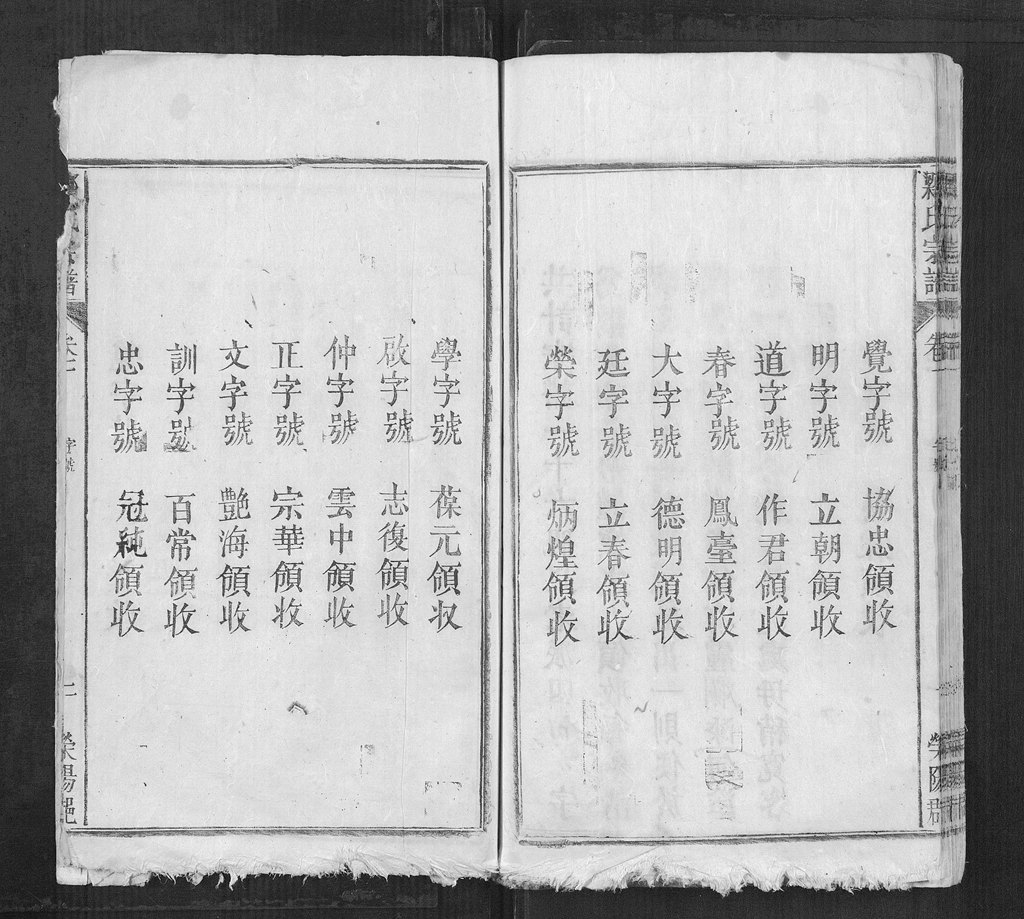 氏宗譜
卷一
字號
滎陽郡
覺字號 協忠領收
明字號 立朝領收
道字號 作君領收
春字號 鳳臺領收
大字號 德明領收
廷字號 立春領收
榮字號 炳煌領收
學字號 葆元領收
啟字號 志復領收
仲字號 雲中領收
正字號 宗華領收
文字號 艷海領收
訓字號 百常領收
忠字號 冠純領收